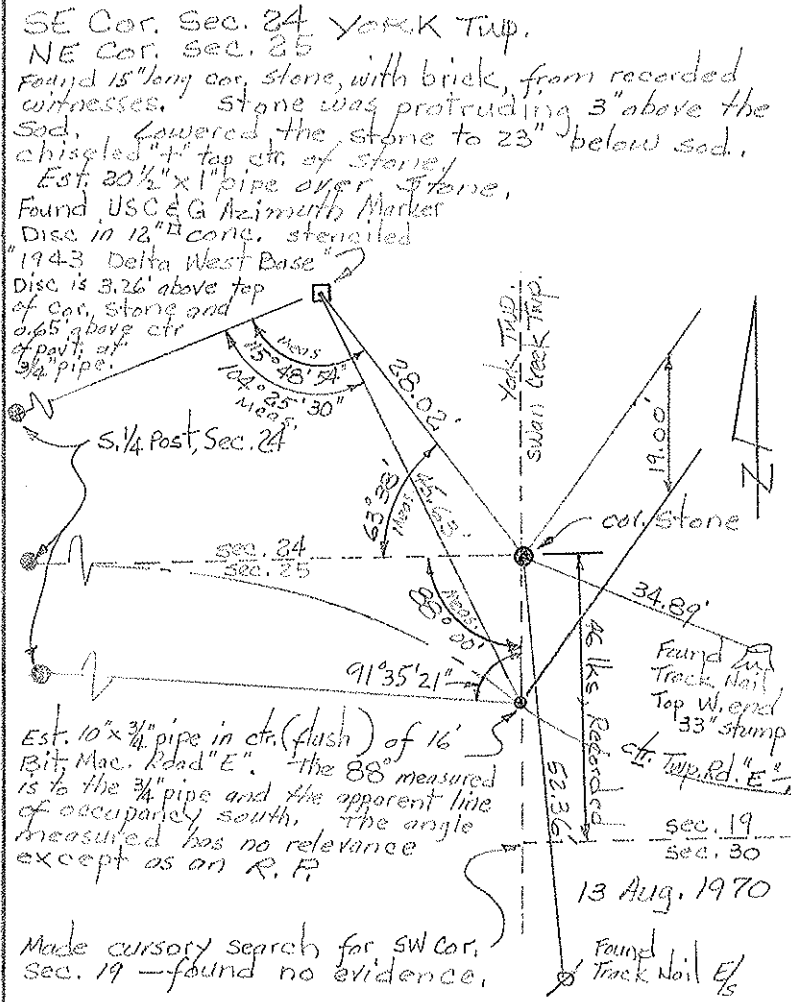 SE Cor. Sec. 24 York Twp.
NE Cor. Sec. 25
Found 15" long cor. stone, with brick, from recorded
witnesses. Stone was protruding 3" above the
sod. Lowered the stone to 23" below sod.
chiseled "+" top ctr. of stone!
Est. 30½" x 1" pipe over stone.
Found USC & G Azimuth Marker
Disc in 12"□ conc. stenciled
"1943 Delta West Base"
Disc is 3.26' above top
of cor. stone and
0.65' above ctr
of pavt. at
3/4" pipe.
Meas
115° 48' 54"
104° 25' 30"
Meas.
28.02'
York Twp.
Swan Creek Twp.
19.00'
S. 1/4 Post, Sec. 24
63° 38'
Meas
45.63'
cor. stone
sec. 24
sec. 25
Meas.
88° 00'
34.89'
46 lks. Recorded
Found
Track Nail
Top W. end
33" stump
91° 35' 21"
ctr. Twp. Rd. "E"
Est. 10" x 3/4" pipe in ctr. (flush) of 16'
Bit. Mac. Road "E". The 88° measured
is to the 3/4" pipe and the apparent line
of occupancy south. The angle
measured has no relevance
except as an R. P.
52.36'
sec. 19
sec. 30
13 Aug. 1970
Made cursory search for SW Cor.
Sec. 19 — found no evidence.
Found
Track Nail E/s
N